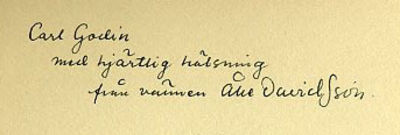 Carl Godin
med hjärtlig hälsning
från vännen Åke Davidsson.